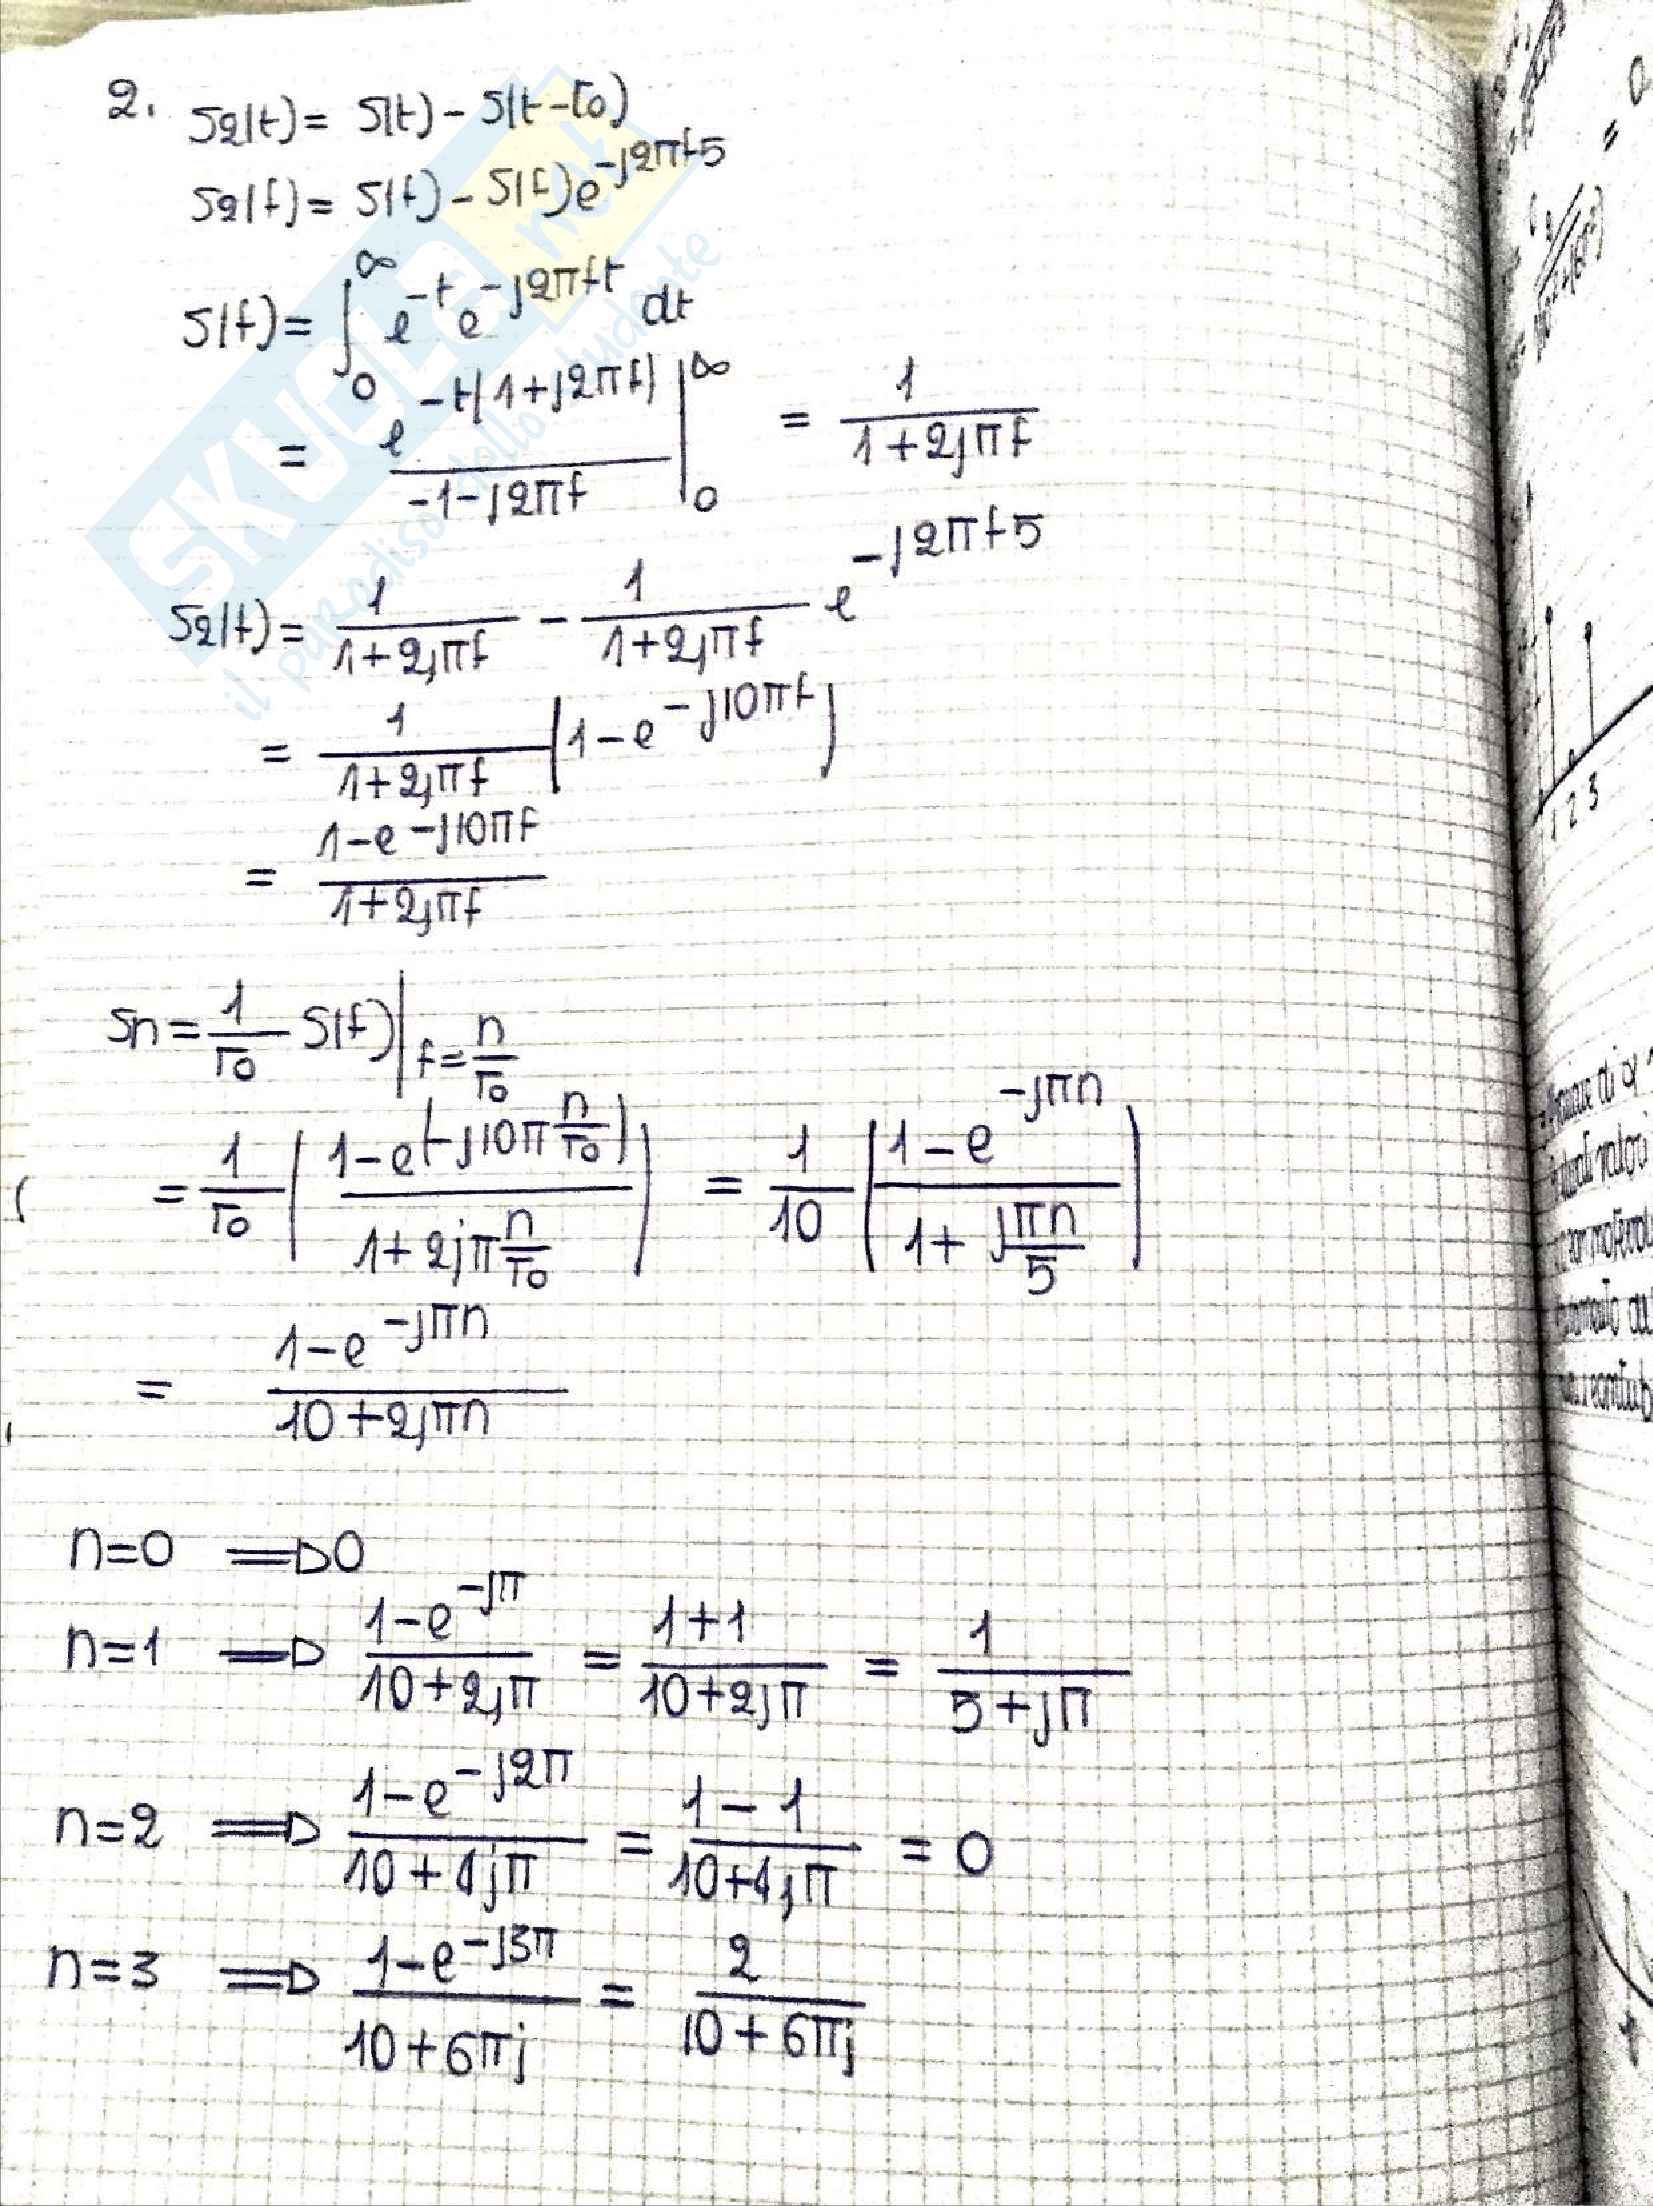 2. S2(t) = S(t) - S(t-T0)
S2(f) = S(f) - S(f)e^{-j2πf5}
S(f) = ∫_0^∞ e^{-t} e^{-j2πft} dt
= e^{-t(1+j2πf)} / (-1-j2πf) |_0^∞ = 1/(1+2jπf)
S2(f) = 1/(1+2jπf) - 1/(1+2jπf) e^{-j2πf5}
= 1/(1+2jπf) (1-e^{-j10πf})
= (1-e^{-j10πf})/(1+2jπf)
Sn = 1/T0 S(f)|_{f=n/T0}
= 1/T0 ( (1-e^{(-j10π n/T0)}) / (1+2jπ n/T0) ) = 1/10 ( (1-e^{-jπn}) / (1+ jπn/5) )
= (1-e^{-jπn})/(10+2jπn)
n=0 ⟹ 0
n=1 ⟹ (1-e^{-jπ})/(10+2jπ) = (1+1)/(10+2jπ) = 1/(5+jπ)
n=2 ⟹ (1-e^{-j2π})/(10+4jπ) = (1-1)/(10+4jπ) = 0
n=3 ⟹ (1-e^{-j3π})/(10+6πj) = 2/(10+6πj)
SKUOLA.net
il paradiso dello studente
1 2 3